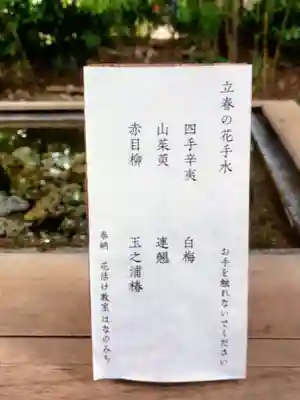 立春の花手水　お手を触れないでください
四手辛夷　白梅
山茱萸　連翹
赤目柳　玉之浦椿
奉納　花活け教室はなのみち